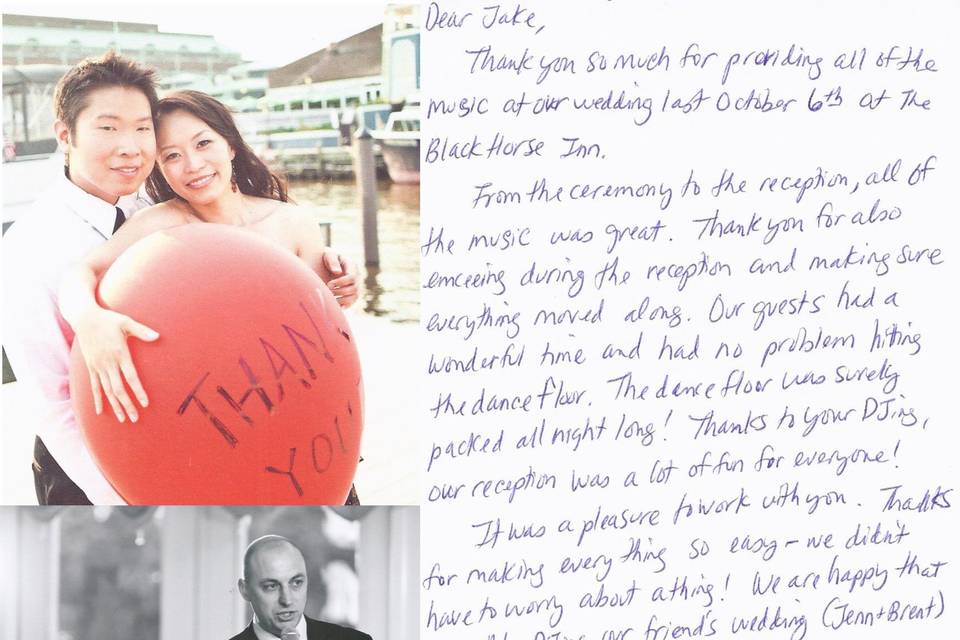 THANK
YOU
Dear Jake,
Thank you so much for providing all of the
music at our wedding last October 6th at The
Black Horse Inn.
From the ceremony to the reception, all of
the music was great. Thank you for also
emceeing during the reception and making sure
everything moved along. Our guests had a
wonderful time and had no problem hitting
the dance floor. The dance floor was surely
packed all night long! Thanks to your DJing,
our reception was a lot of fun for everyone!
It was a pleasure to work with you. Thanks
for making every thing so easy - we didn't
have to worry about a thing! We are happy that
DJing our friend's wedding (Jenn + Brent)